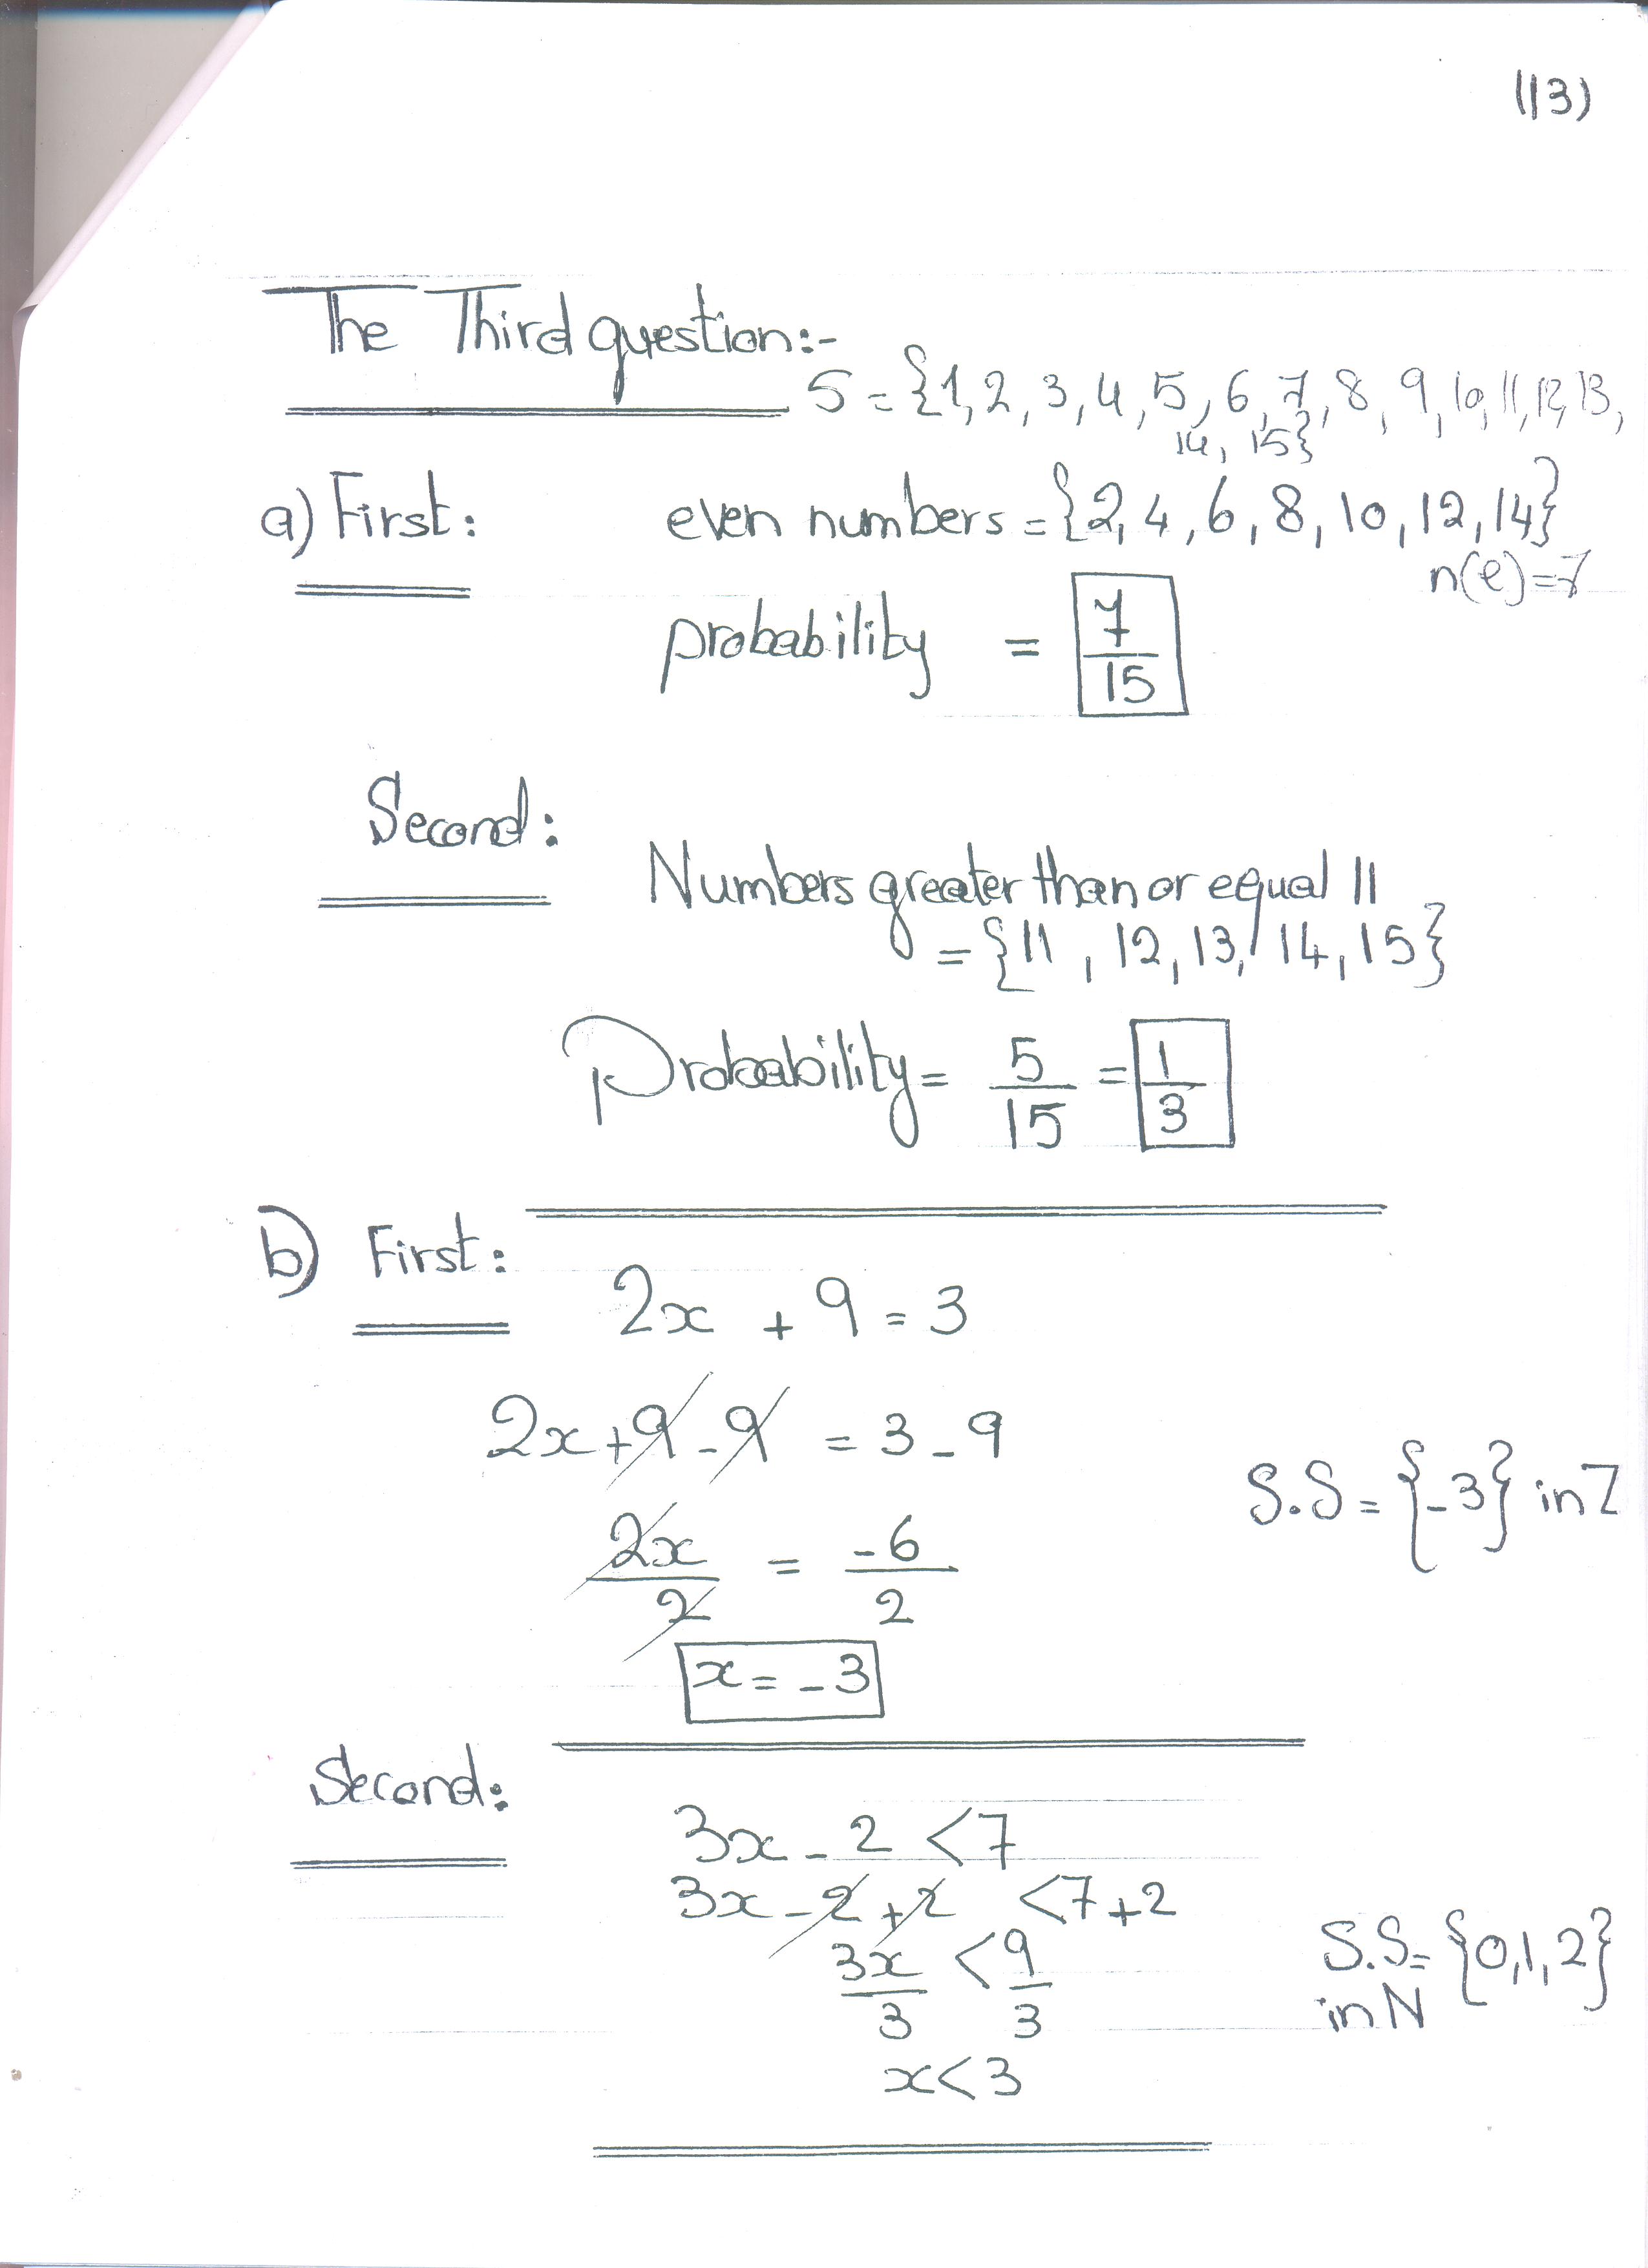 (113)
The Third question:-
S = {1, 2, 3, 4, 5, 6, 7, 8, 9, 10, 11, 12, 13,
14, 15}
a) First: even numbers = {2, 4, 6, 8, 10, 12, 14}
n(e) = 7
probability = 7/15
Second:
Numbers greater than or equal 11
= {11, 12, 13, 14, 15}
Probability = 5/15 = 1/3
b) First:
2x + 9 = 3
2x + 9 - 9 = 3 - 9
S.S = {-3} in Z
2x/2 = -6/2
x = -3
Second:
3x - 2 < 7
3x - 2 + 2 < 7 + 2
3x/3 < 9/3
S.S = {0, 1, 2}
in N
x < 3